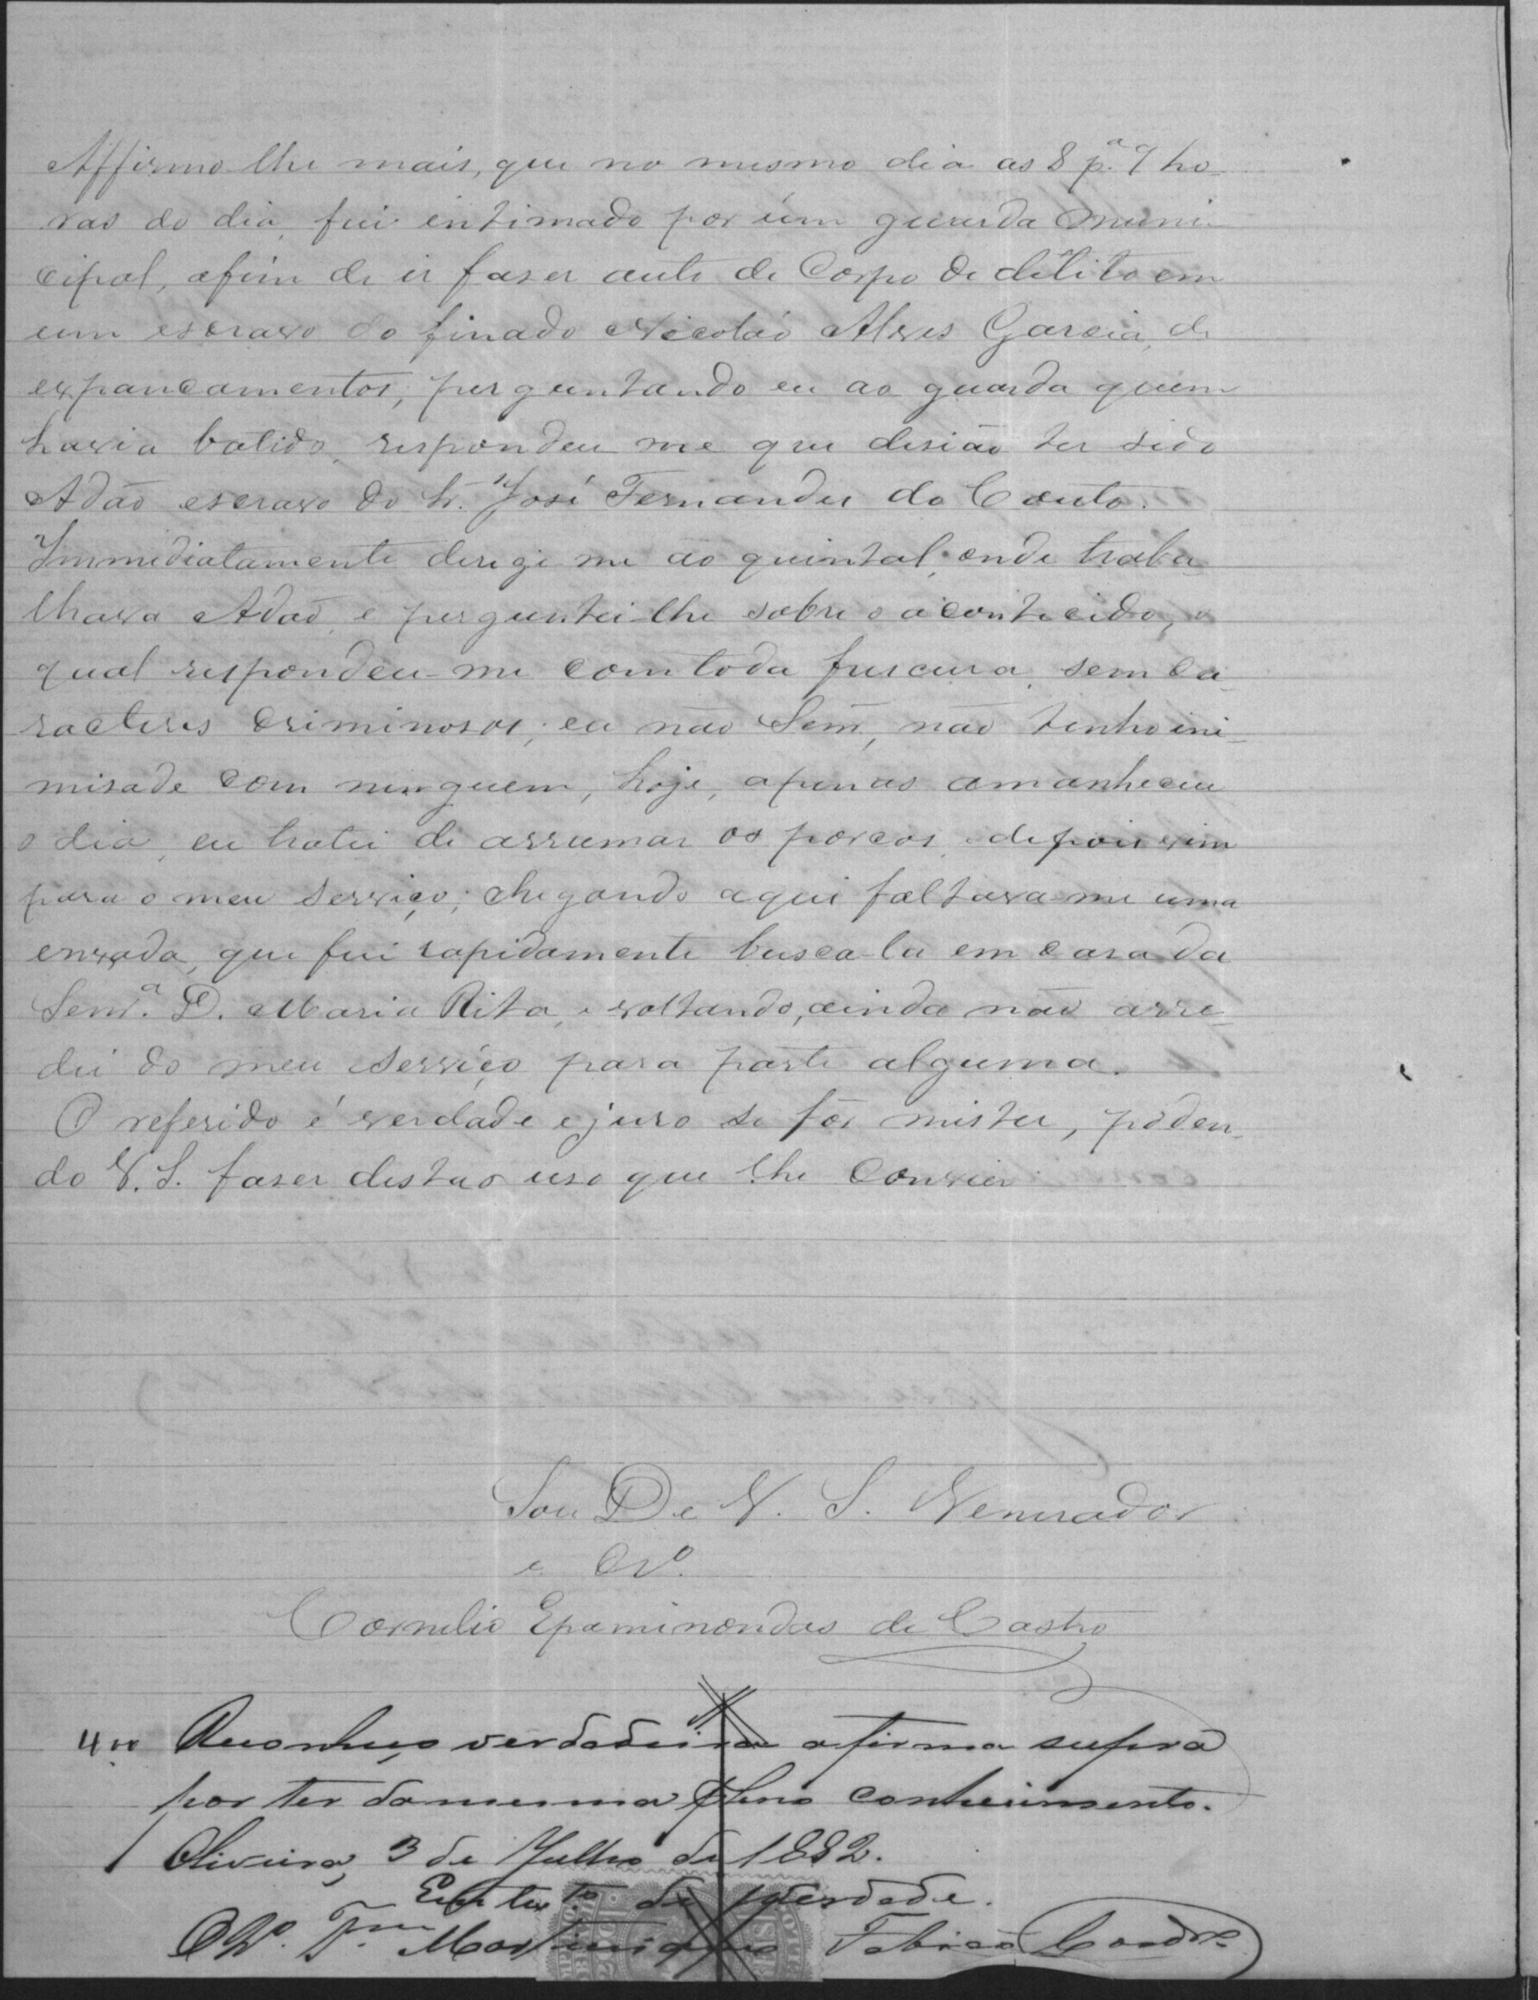 Affirmo-lhe mais, que no mesmo dia as 8 p.ª 9 ho-
ras do dia, fui intimado por um guarda muni-
cipal, afim de ir faser auto de Corpo de delito em
um escravo do finado Nicoláo Alves Garcia, de
expancamentos; perguntando eu ao guarda quem
havia batido, respondeu me que disião ter sido
Adão escravo do Sr. José Fernandes do Couto.
Immediatamente derigi me ao quintal, onde traba-
lhava Adão, e perguntei-lhe sobre o acontecido, o
qual respondeu-me com toda frescura, sem ca-
racteres criminosos; eu não Senr, não tenho ini-
misade com ninguem, hoje, apenas amanheceu
o dia, eu tratei de arrumar os porcos, e depois vim
para o meu serviço; chegando aqui faltava-me uma
enxada, que fui rapidamente busca-la em casa da
Senr.ª D. Maria Rita, e voltando, ainda não arre-
dei do meu serviço para parte alguma.
O referido é verdade e juro se fôr mister, poden-
do V. S. faser desta o uso que lhe convier.
Sou De V. S. Venerador
e Cr.º
Cornelio Epaminondas de Castro
400 Reconheço verdadeira a firma supra
por ter da mesma pleno conhecimento.
Oliveira, 3 de Julho de 1882.
Em test.º de verdade.
Martiniano